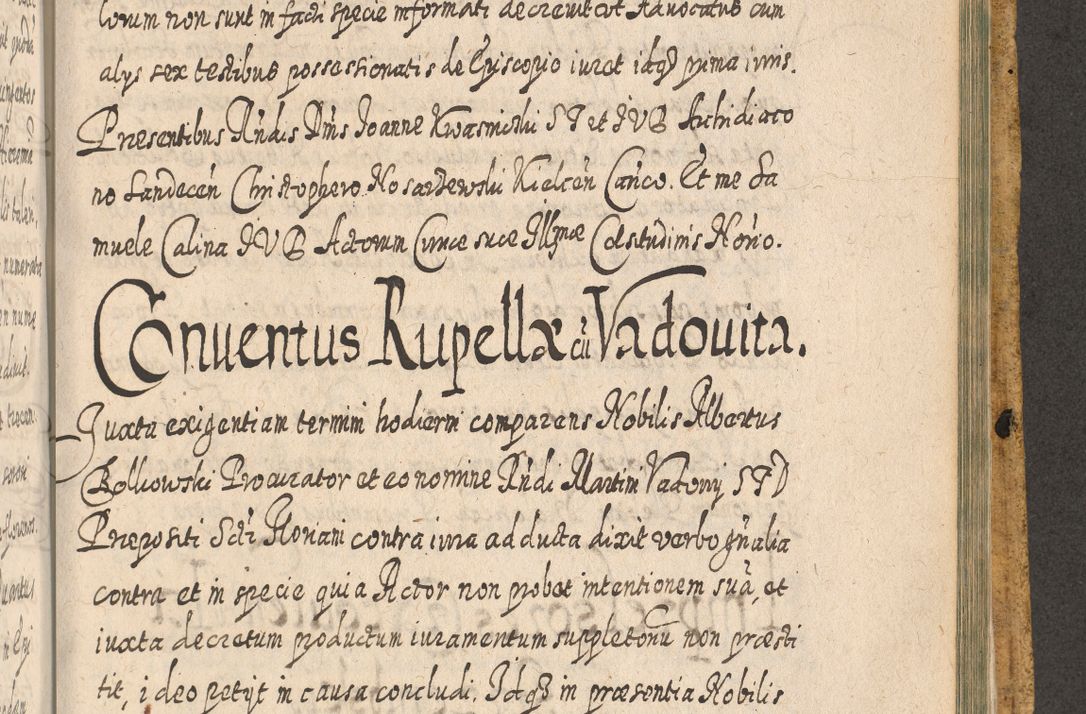 lorum non sunt in facti specie informati decrevit ut Advocatus cum
alys sex testibus possessionatis de Episcopio iuret idq3 prima iuris.
Presentibus Rndis Dnis Ioanne Kwasnicki STetIVB Archidiaco
no Sandecen Christophero Nosarzewski Kielcen Canco. Et me Sa
muele Calina IVB Actorum Curiæ suæ Illmæ Celsitudinis Norio.
Conventus Rupellæ cū Vadovita.
Juxta exigentiam termini hodierni comparens Nobilis Albertus
Bolkowski Procurator et eo nomine Rndi Martini Vadovij STD
Præpositi Scti Floriani contra iura adducta dixit verbo gnalia
contra et in specie quia Actor non probet intentionem suā, et
iuxta decretum productum iuramentum suppletoriū non præsti
tit, ideo petijt in causa concludi. Idq3 in præsentia Nobilis